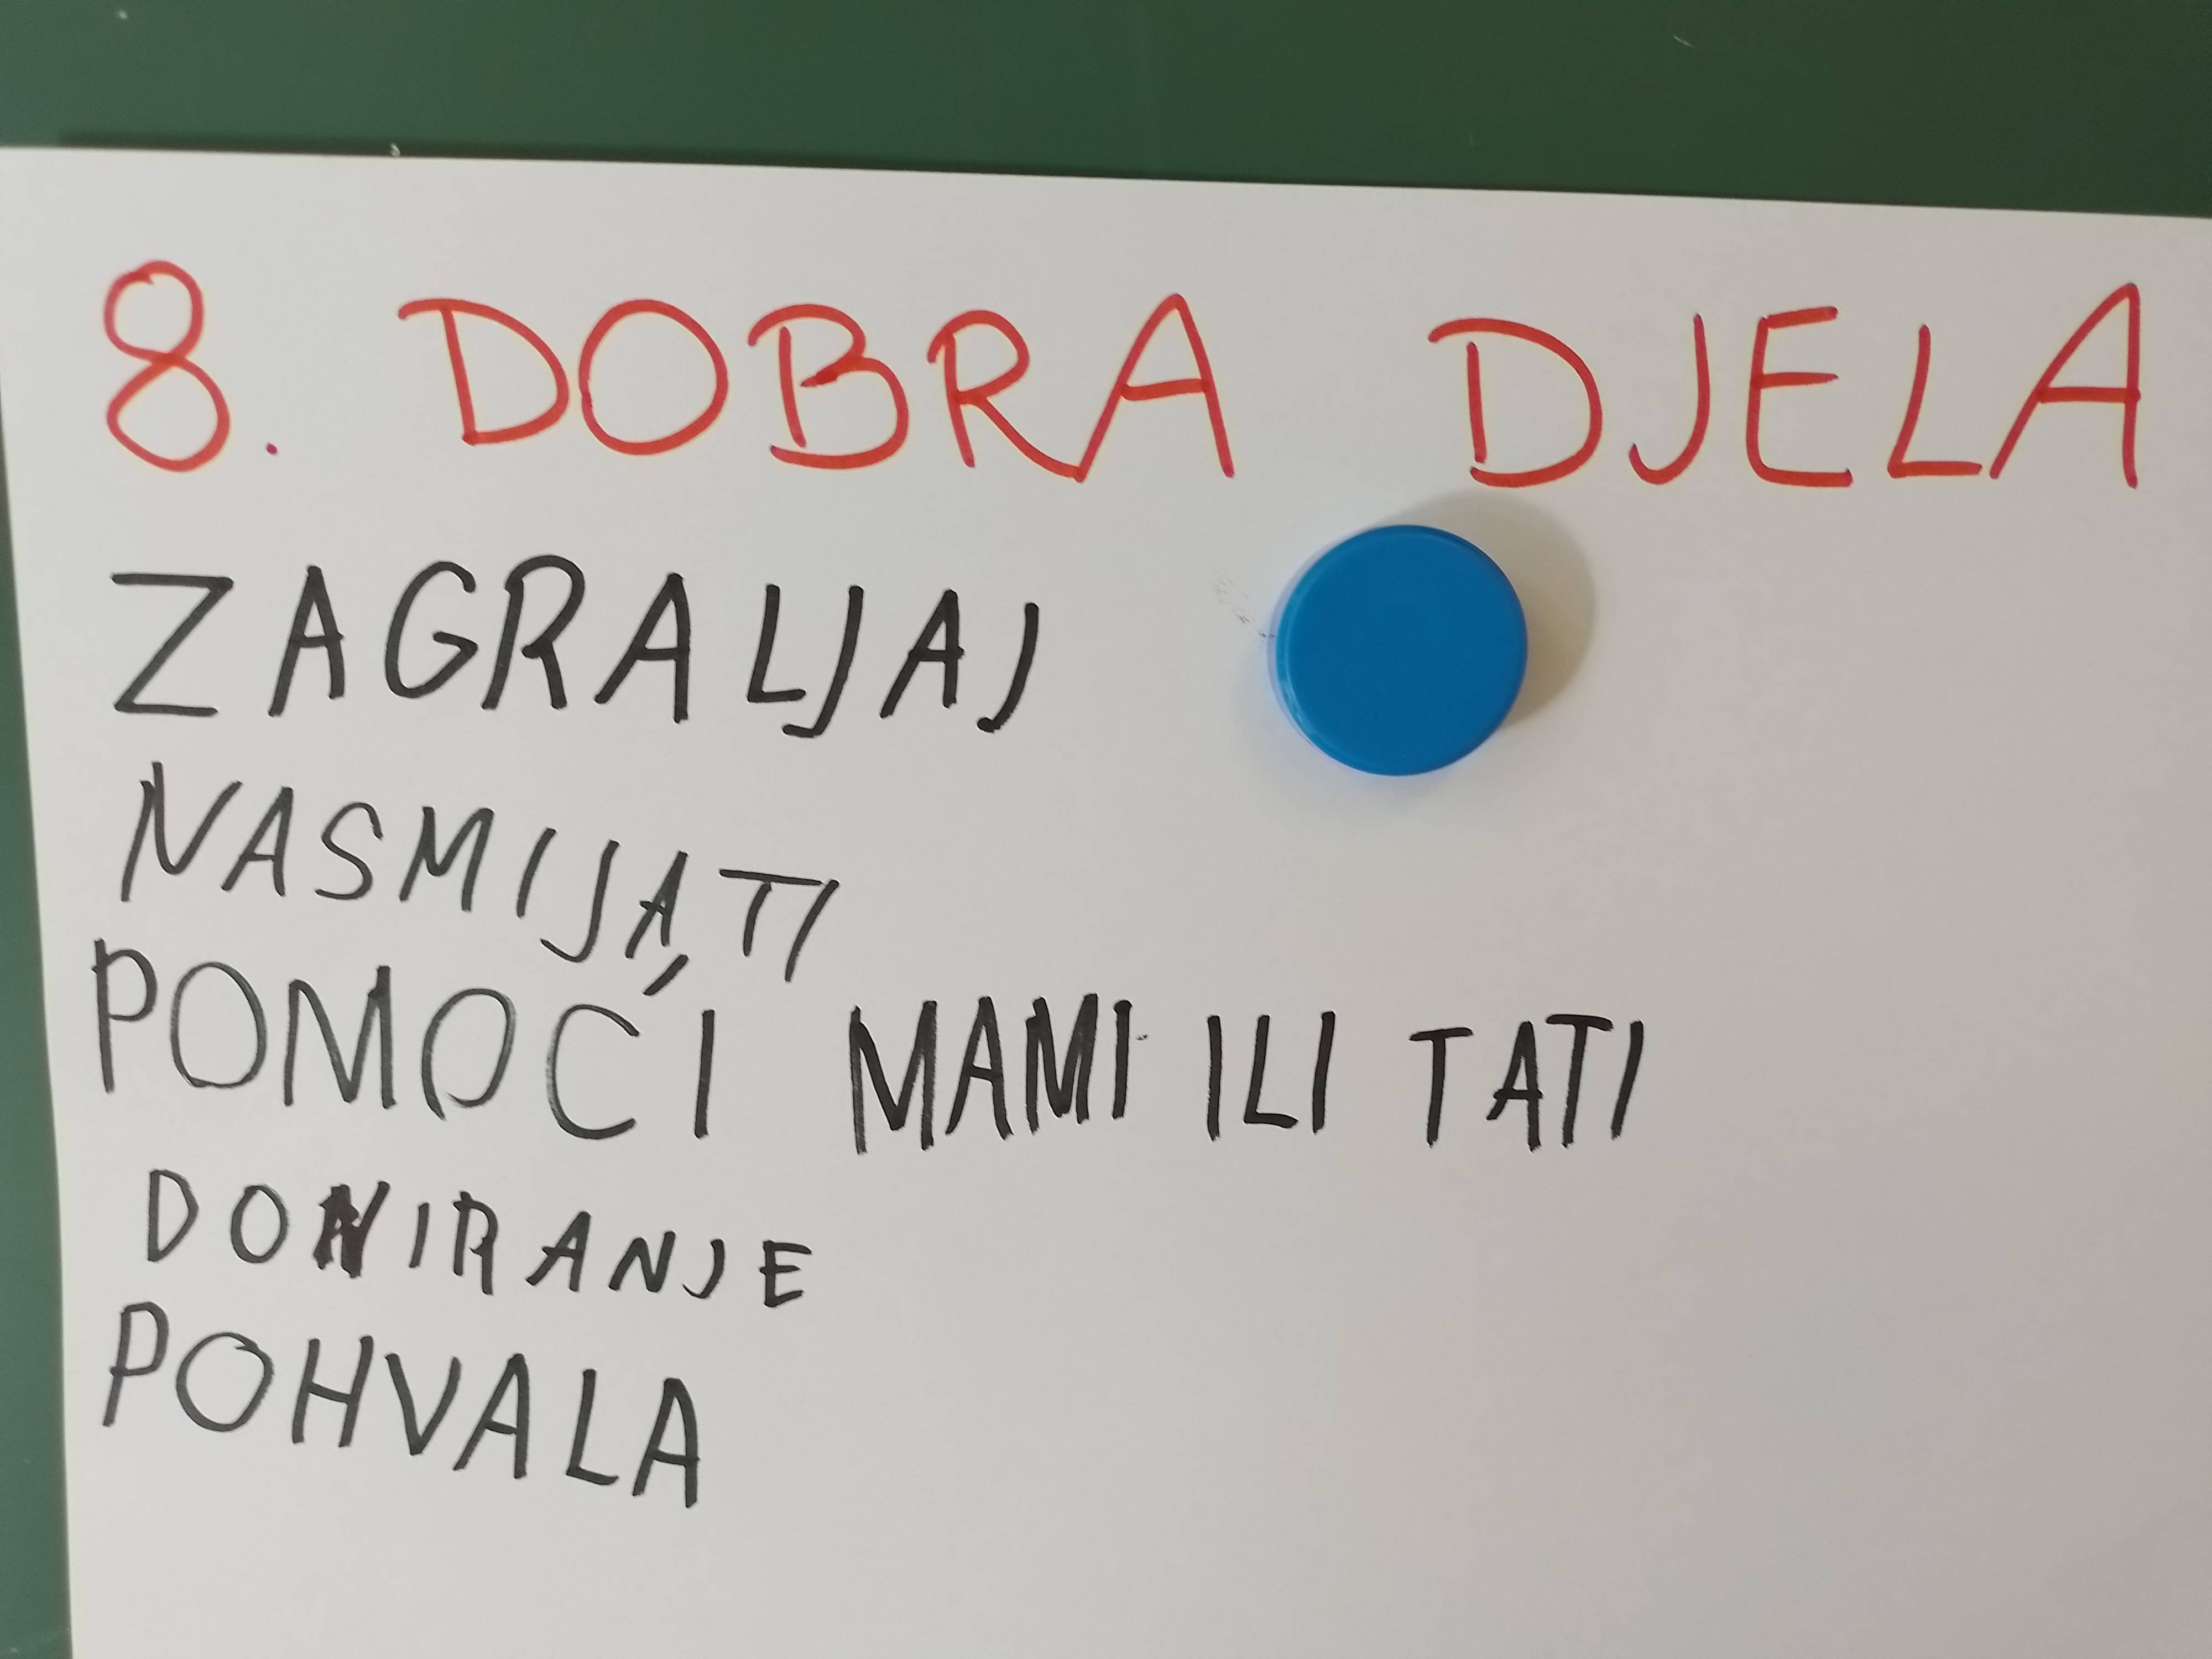 8. DOBRA DJELA
ZAGRALJAJ
NASMIJATI
POMOĆI MAMI ILI TATI
DONIRANJE
POHVALA